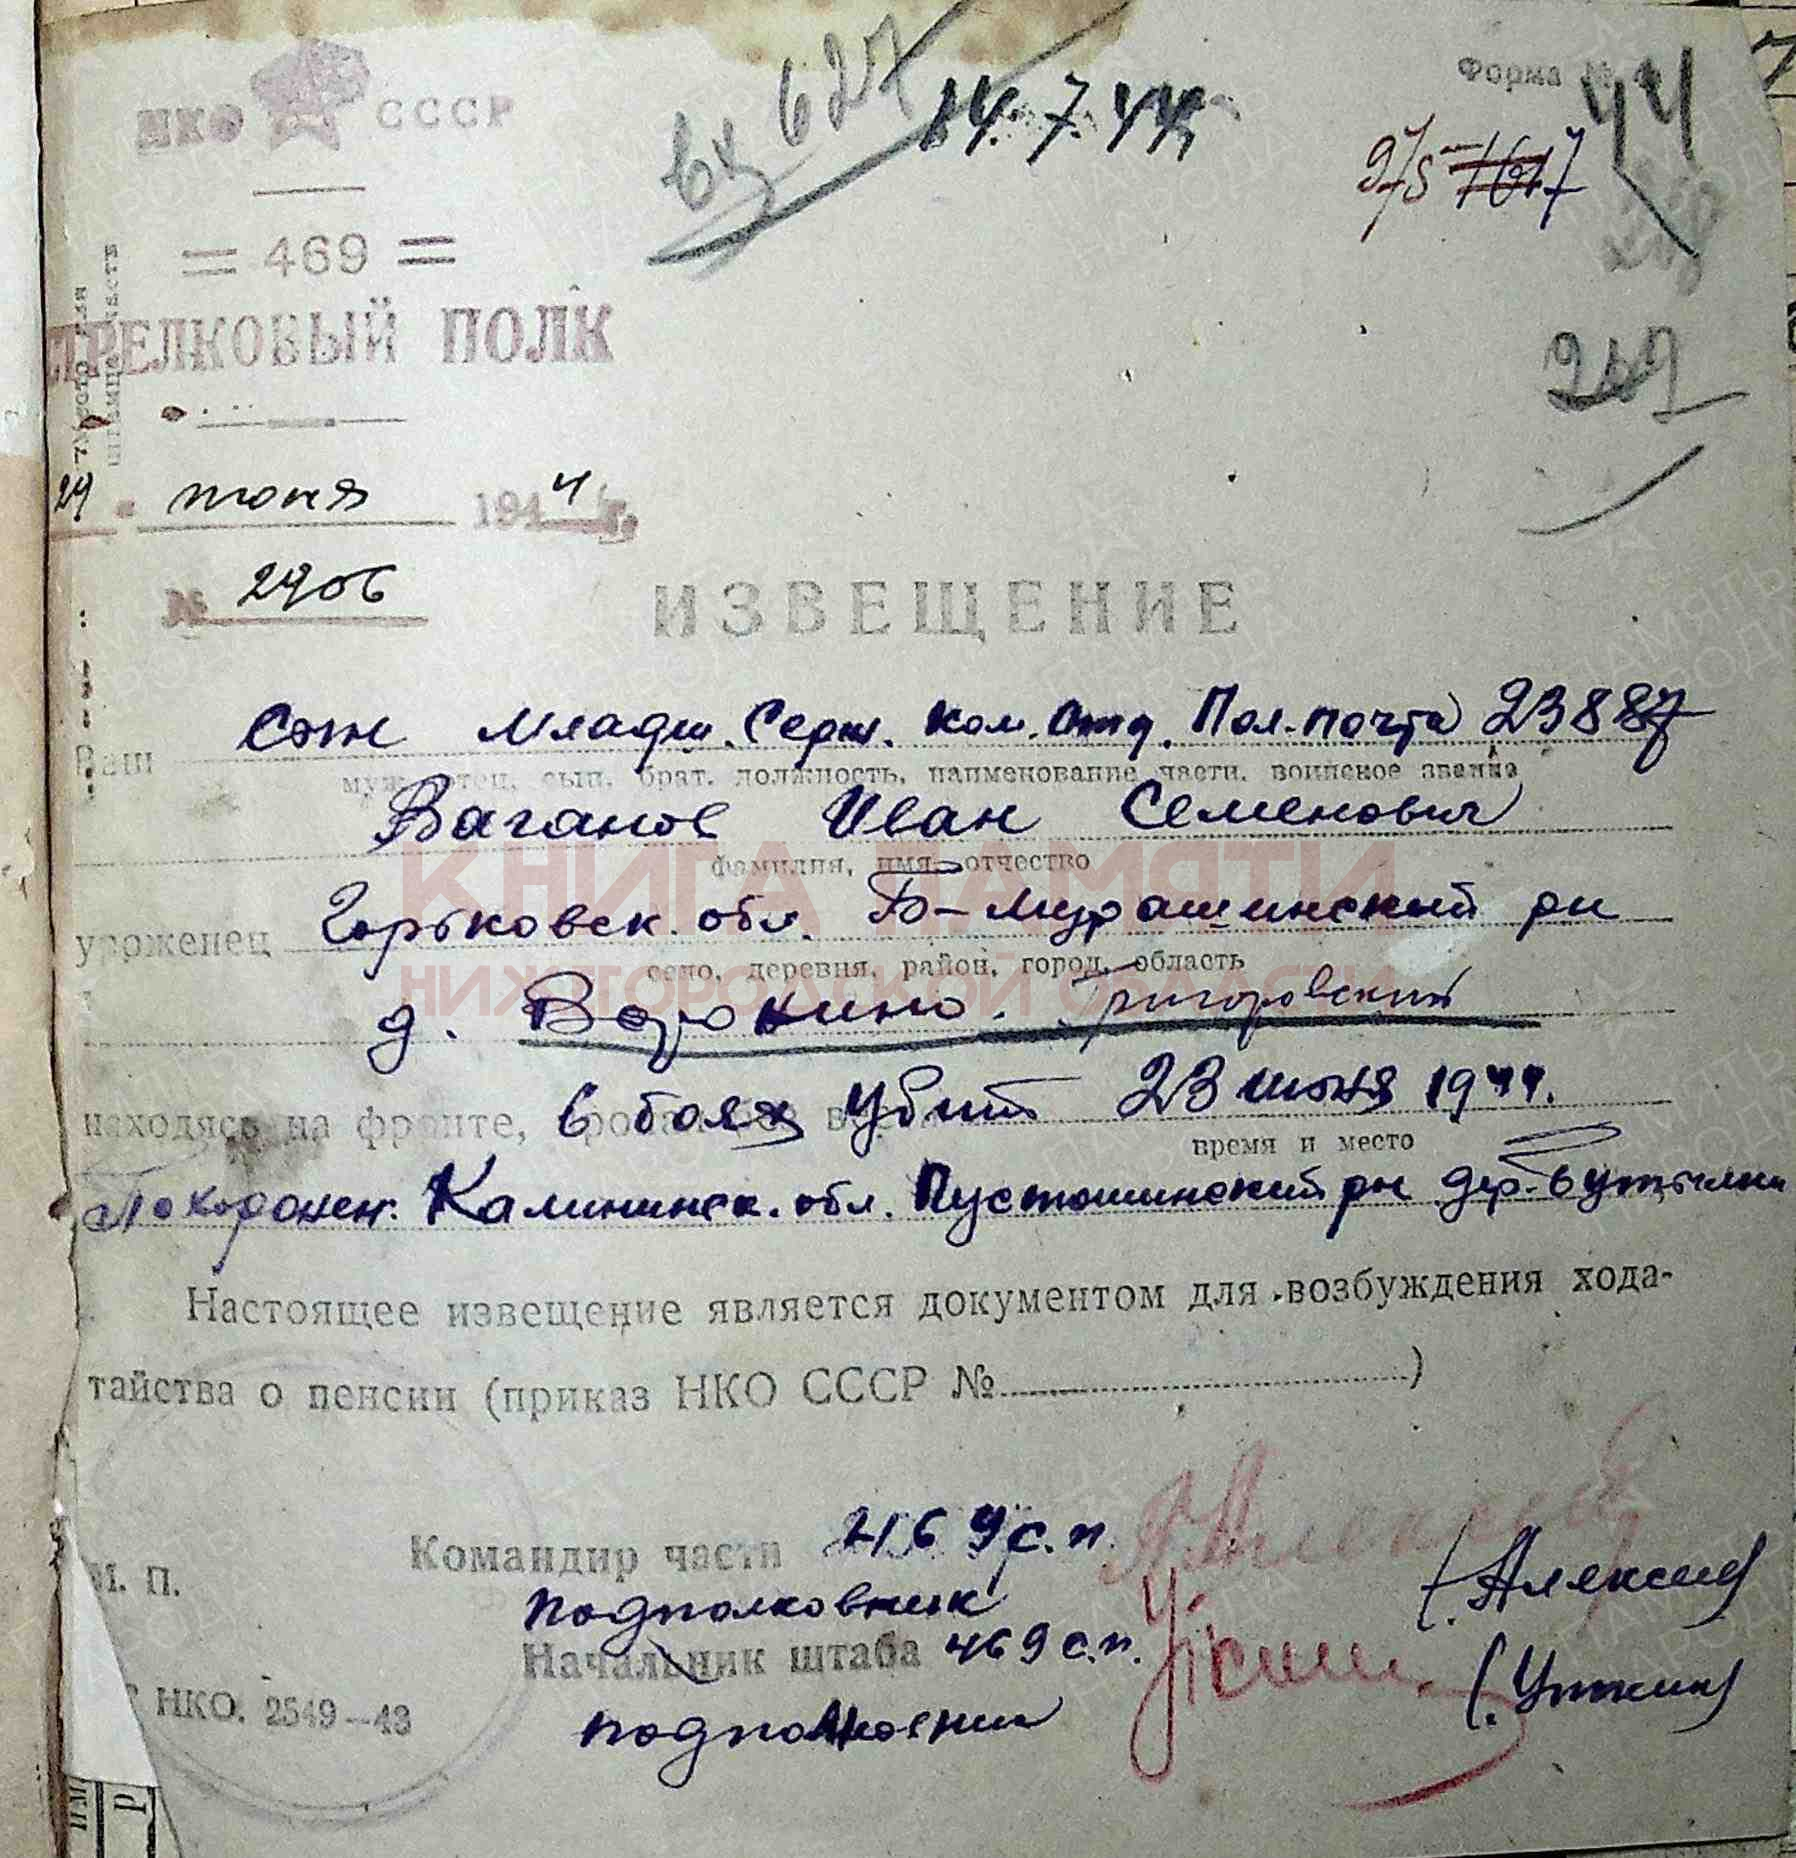 вх 627
14.7.44
Форма №
975
НКО СССР
= 469 =
СТРЕЛКОВЫЙ ПОЛК
24 " июня 1944 г.
№ 2406
249
ИЗВЕЩЕНИЕ
Ваш сын Младш. Серж. Ком. Отд. Пол. почта 23887
муж, отец, сын, брат. должность, наименование части, воинское звание
Ваганов Иван Семенович
фамилия, имя, отчество
КНИГА ПАМЯТИ
уроженец Горьковск. обл. Б-Мурашкинский рн
село, деревня, район, город, область
НИЖЕГОРОДСКОЙ ОБЛАСТИ
д. Григоровский
находясь на фронте, в боях убит 23 июня 1944.
время и место
Похоронен. Калининск. обл. Пустошинский рн дер.
Настоящее извещение является документом для возбуждения хода-
тайства о пенсии (приказ НКО СССР № )
Командир части 469 с.п.
М. П.
подполковник
(Алексид)
Начальник штаба 469 с.п.
(Уткин)
НКО. 2549—43
подполковник